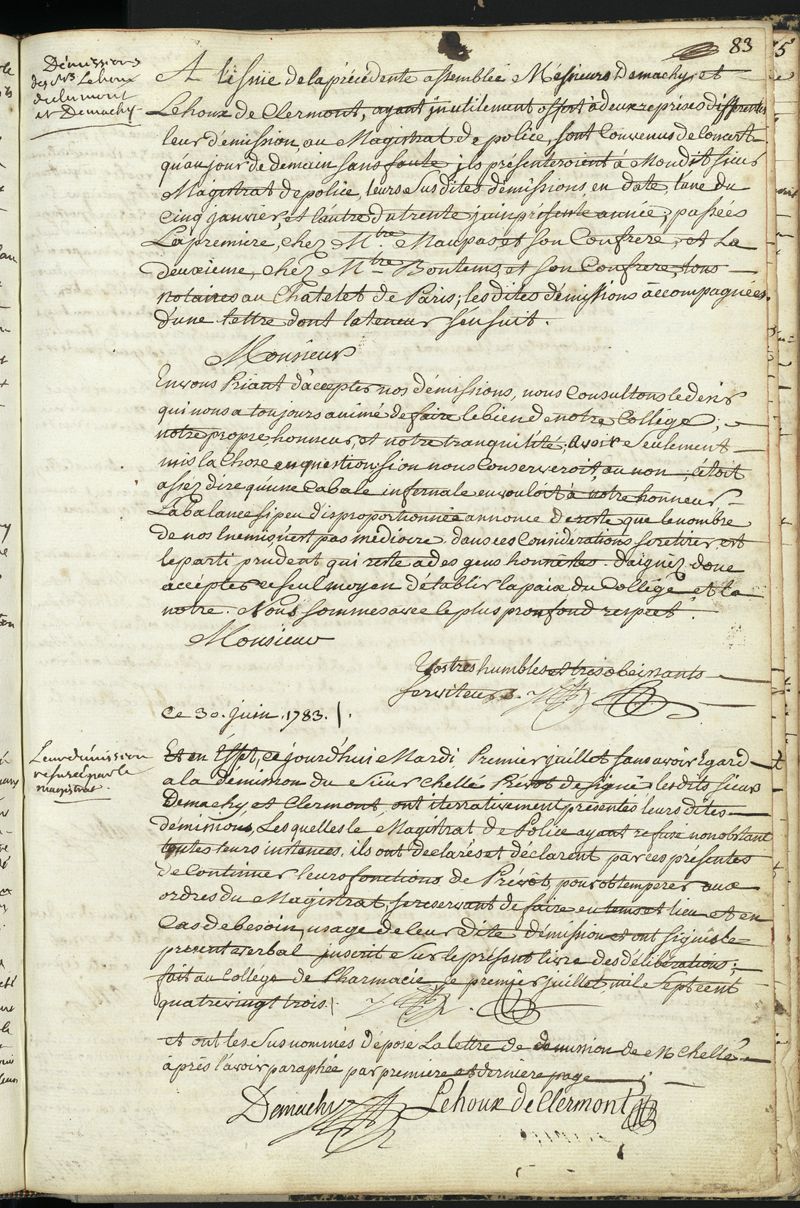 83
Démissions
des Srs Lehoux
de Clermont
et Demachy
A l'issüe de la précédente assemblée Messieurs Demachy, et
Lehoux de Clermont, ayant inutilement offert à deux reprises differentes
leur démission, au Magistrat de police, sont convenus de concert
qu'au jour de demain sans faute ils présenteroient à Mondit sieur
Magistrat de police, leurs susdites démissions en date, l'une du
cinq janvier, et l'autre du trente juin présente année, passées
La premiere, chez Mtre Maupas et son Confrere, et La
deuxieme, chez Mtre Boutems, et son Confrere tous
notaires au Chatelet de Paris; lesdites démissions accompagnées
d'une lettre dont la teneur s'ensuit.
Monsieur
En vous Priant d'accepter nos démissions, nous Consultons le desir
qui nous a toujours animé de faire le bien de notre College;
notre propre honneur, et notre tranquilité; avoir seulement
mis la Chose en question si on nous Conserveroit, ou non, c'étoit
assez dire qu'une Cabale infernale en vouloit à notre honneur
La balance si peu disproportionnée annonce de reste que le nombre
de nos Ennemis n'est pas médiocre dans ces Considérations se retirer est
le parti prudent qui reste a des gens honnêtes. Daignez donc
accepter ce seul moyen d'établir la paix du College et la
notre. Nous sommes avec le plus pronfond respect.
Monsieur
Vos tres humbles et tres obeissants
serviteurs.
Ce 30. juin. 1783.
Leur démission
refusée par le
magistrat.
Et en Effet, ce jourd'hui Mardi, Premier juillet sans avoir Egard
a la démission du sieur Chellé Prévot designé lesdits sieurs
Demachy et Clermont ont iterativement présentés leurs dites
démissions, Lesquelles le Magistrat de Police ayant refusé nonobstant
toutes leurs instances, ils ont declarés et déclarent par ces présentes
de Continuer leurs fonctions de Prévôts, pour obtemperer aux
ordres du Magistrat, se reservant de faire en tems et lieu et en
Cas de besoin, usage de leur dite démission et ont signés le
present verbal inscrit sur le présent livre des délibérations;
fait au College de Pharmacie le premier juillet mil sept cent
quatre vingt trois.
et ont les susnommés déposé La lettre de démission de M Chellé
après l'avoir paraphée par premiere et derniere page
Demachy Lehoux de Clermont